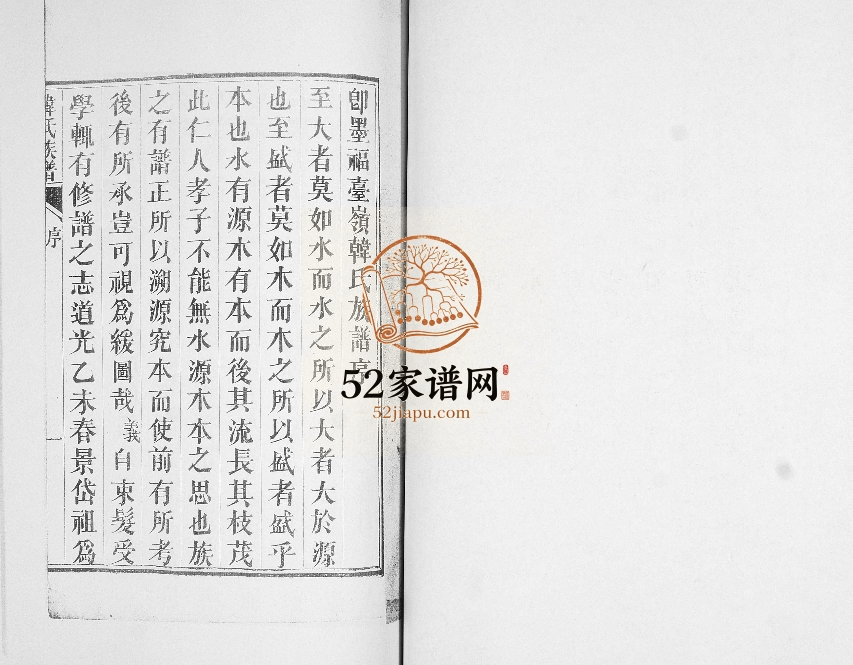 卽墨福臺嶺韓氏族譜序
至大者莫如水而水之所以大者大於源
也至盛者莫如木而木之所以盛者盛乎
本也水有源木有本而後其流長其枝茂
此仁人孝子不能無水源木本之思也族
之有譜正所以溯源究本而使前有所考
後有所承豈可視爲緩圖哉義自束髮受
學輒有修譜之志道光乙未春景岱祖爲
韓氏族譜
序
一
52家谱网
52jiapu.com